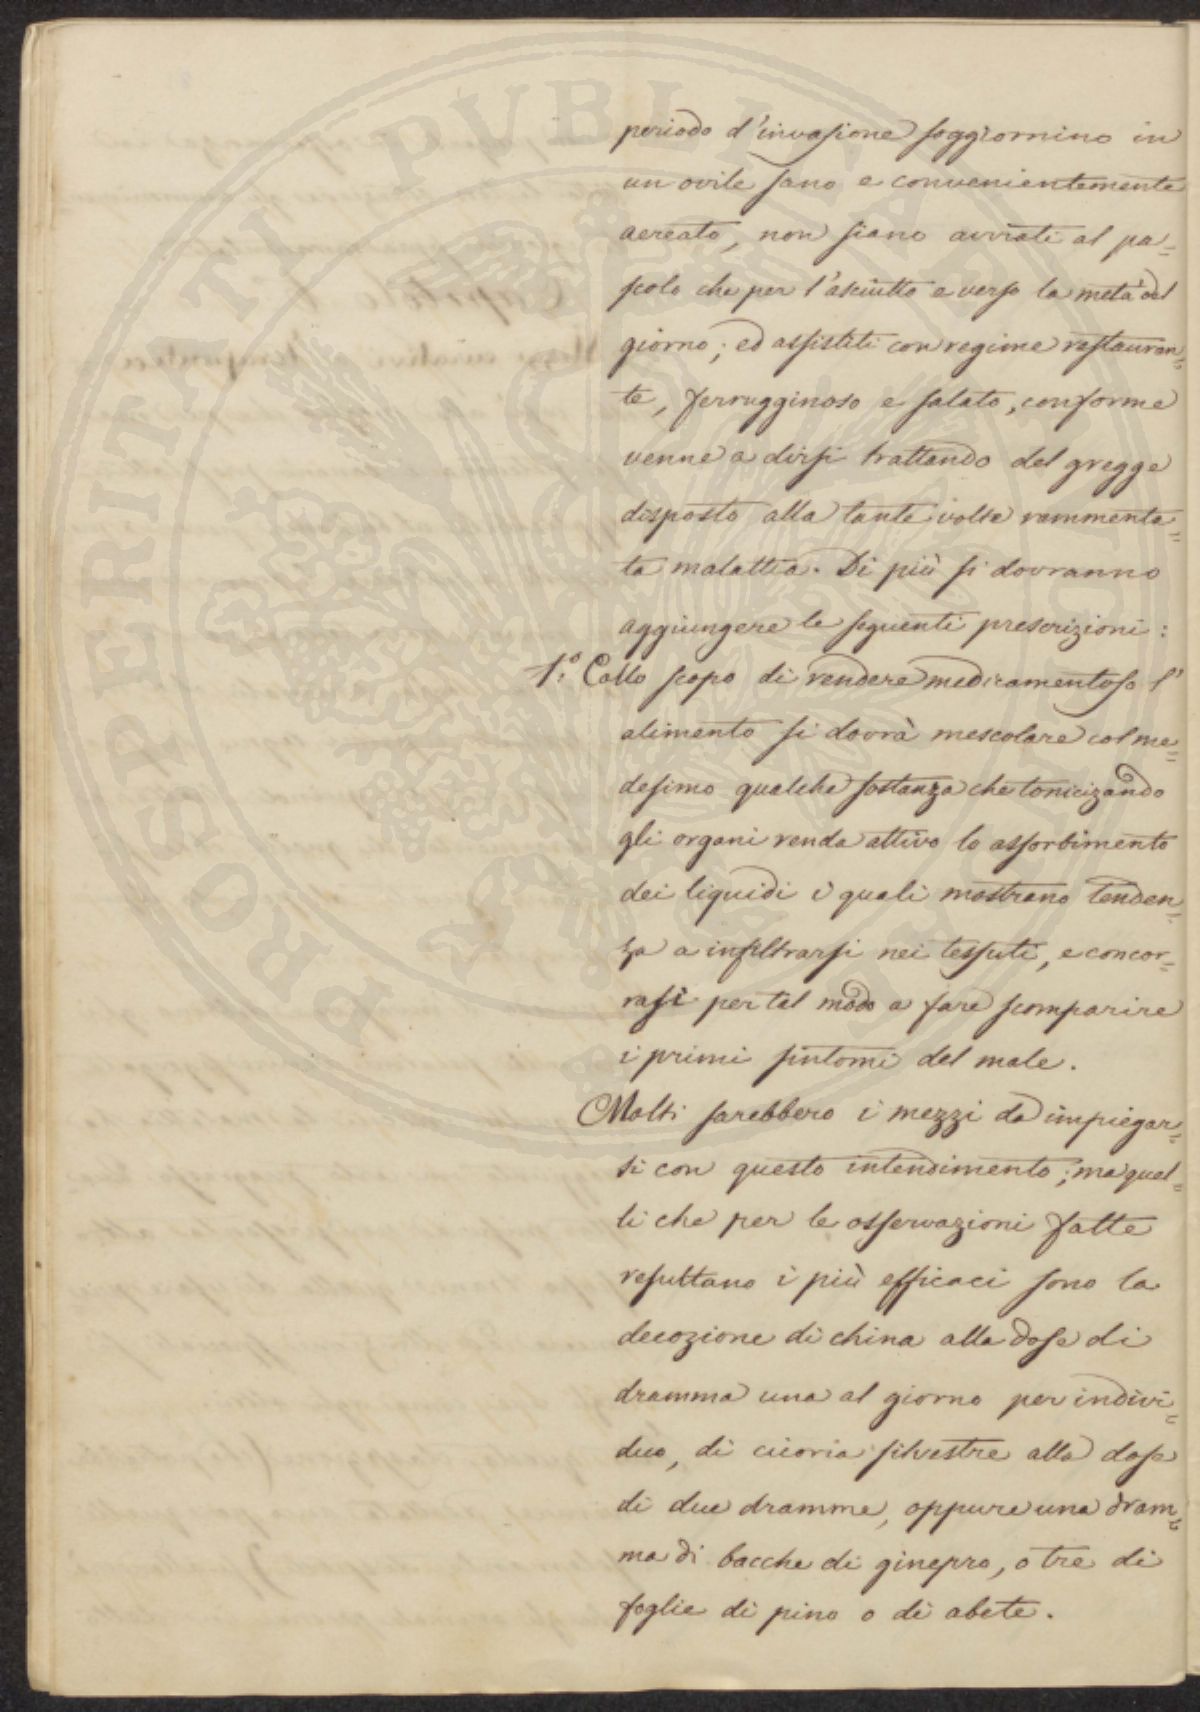 periodo d'invasione soggiornino in
un ovile sano e convenientemente
aereato, non siano avviati al pa=
scolo che per l'asciutto e verso la metà del
giorno; ed assistiti con regime restauran=
te, ferrugginoso e salato, conforme
venne a dirsi trattando del gregge
disposto alla tante volte rammenta=
ta malattia. Di più si dovranno
aggiungere le seguenti prescrizioni:
1.º Collo scopo di rendere medicamentoso l'
alimento si dovrà mescolare col me=
desimo qualche sostanza che tonicizando
gli organi renda attivo lo assorbimento
dei liquidi i quali mostrano tenden=
za a infiltrarsi nei tessuti, e concor=
rasi per tal modo a fare scomparire
i primi sintomi del male.
Molti sarebbero i mezzi da impiegar=
si con questo intendimento; ma quel=
li che per le osservazioni fatte
resultano i più efficaci sono la
decozione di china alla dose di
dramma una al giorno per indivi=
duo, di cicoria silvestre alla dose
di due dramme, oppure una dram=
ma di bacche di ginepro, o tre di
foglie di pino o di abete.
PROSPERITATI PUBLICAE